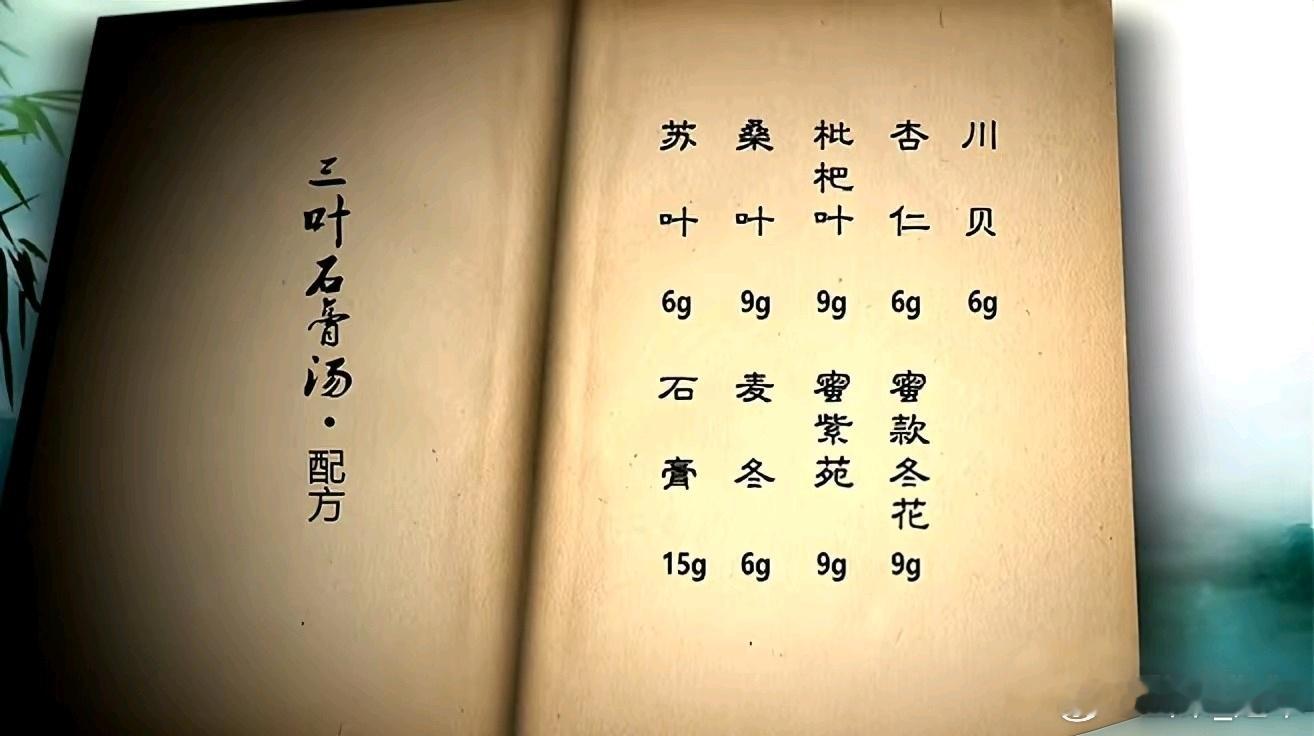 三叶石膏汤·配方
苏叶 桑叶 枇杷叶 杏仁 川贝
6g 9g 9g 6g 6g
石膏 麦冬 蜜紫苑 蜜款冬花
15g 6g 9g 9g